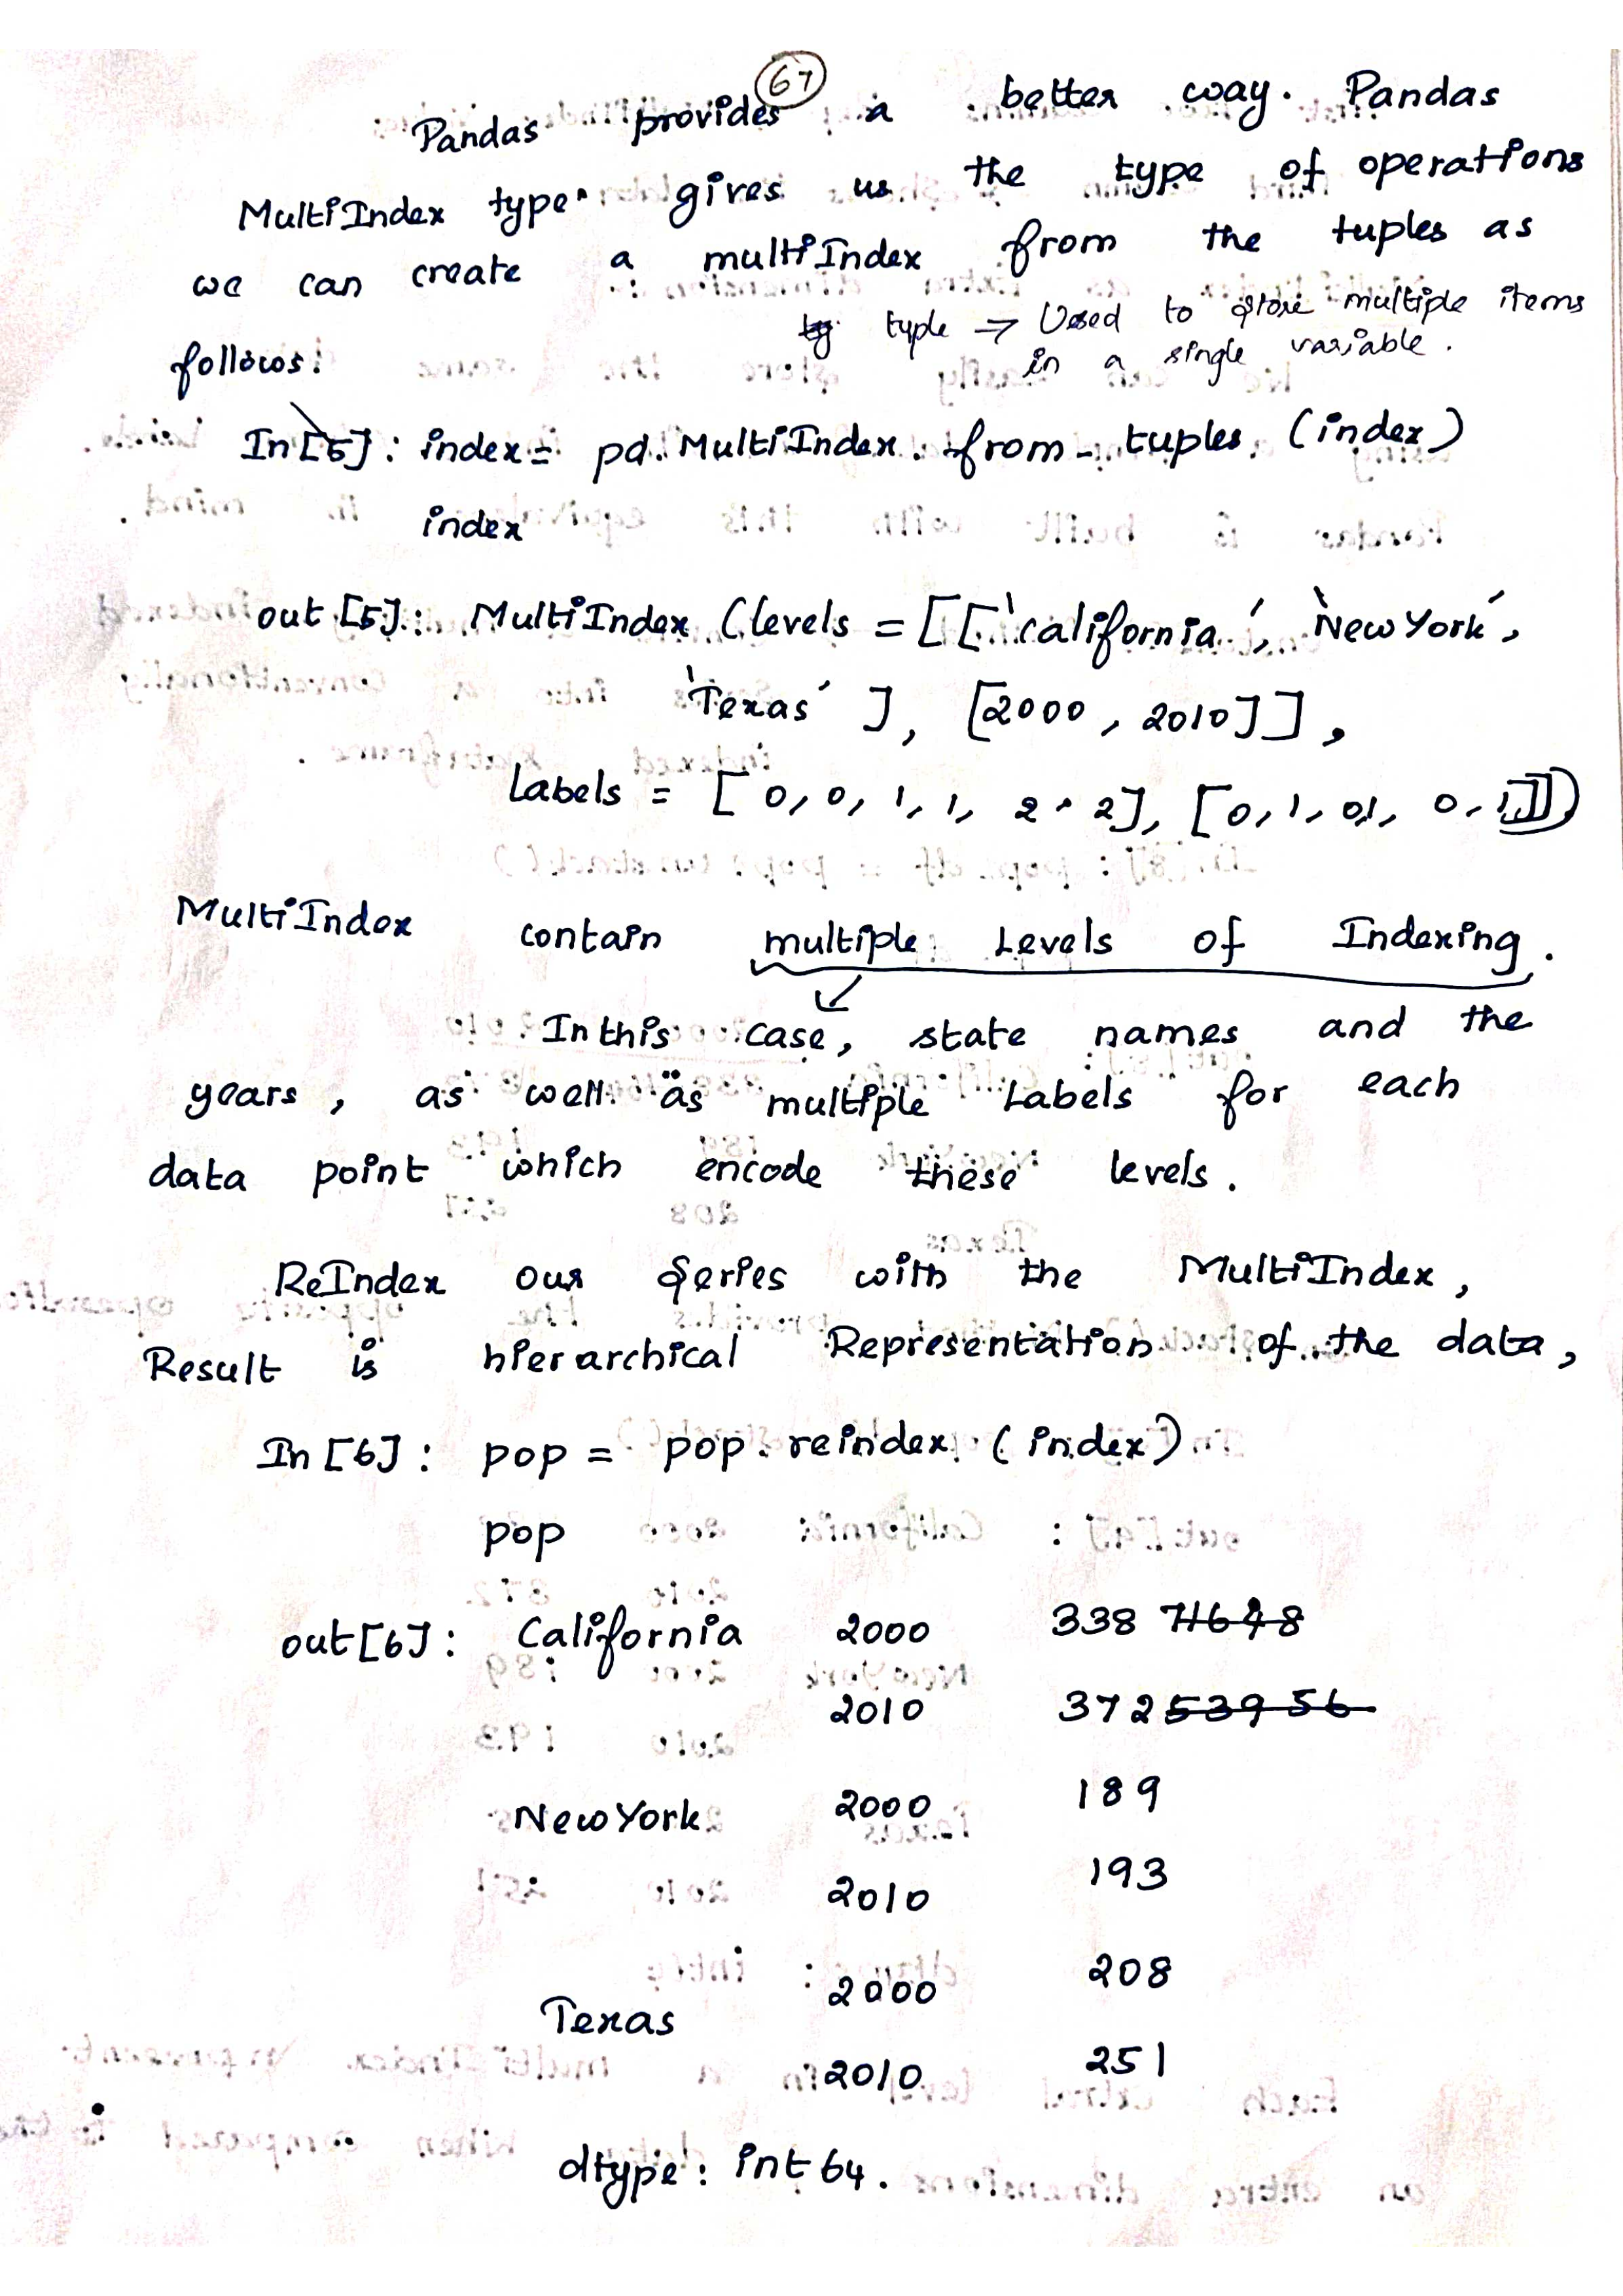 67
Pandas provides a better way. Pandas
MultiIndex type gives us the type of operations
we can create a multiIndex from the tuples as
follows:
tuple → Used to store multiple items
in a single variable.
In[5]: index = pd. MultiIndex. from_tuples. (index)
index
out [5]: MultiIndex (levels = [['california', 'New York',
'Texas' ], [2000, 2010]],
Labels = [0,0, 1,1, 2, 2], [0,1,0,1, 0,1]])
MultiIndex contain multiple Levels of Indexing.
In this case, state names and the
years, as well as multiple Labels for each
data point which encode these levels.
ReIndex our series with the MultiIndex,
Result is hierarchical Representation of the data,
In [6]: pop = pop. reindex. (index)
pop
out[6]: California 2000 338 71648
2010 372 539 56
New York 2000 189
2010 193
Texas 2000 208
2010 251
dtype: int 64.